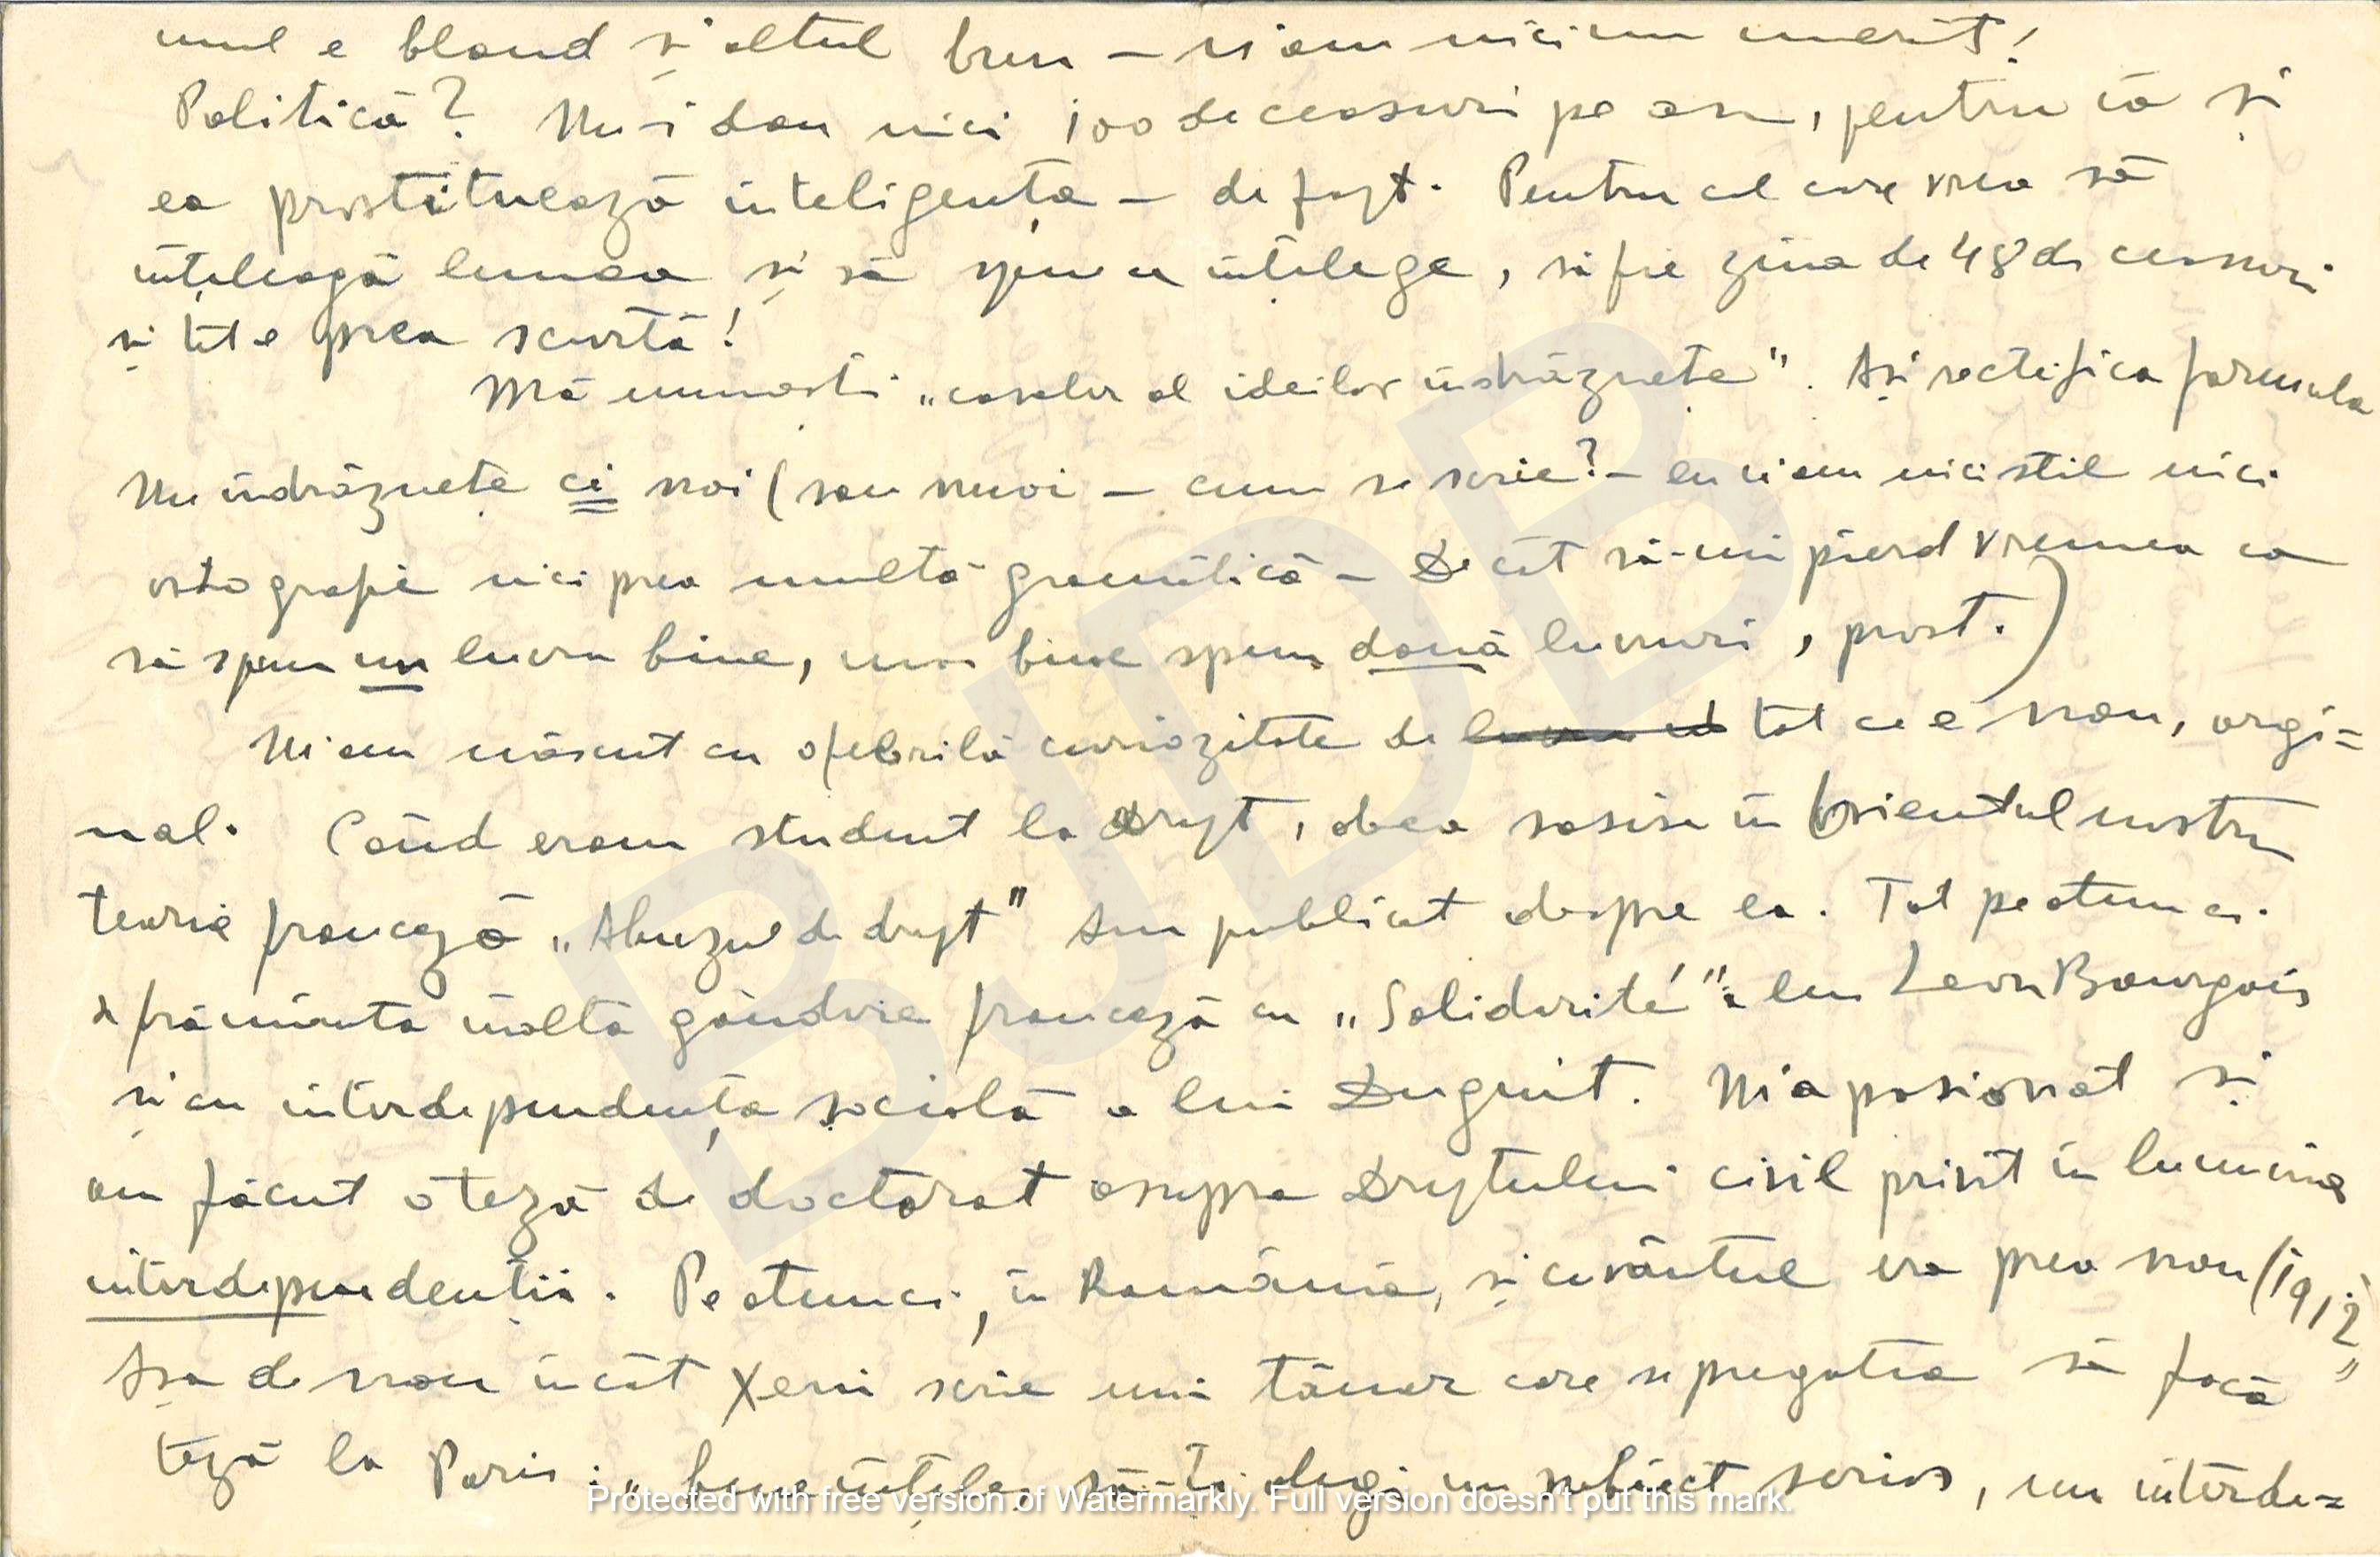 unul e blond și altul brun – n'am nici un merit!
Politică? Nu-i dau nici 100 de ceasuri pe an, pentru că și
ea prostituează inteligența – de fapt. Pentru cel care vrea să
înțeleagă lumea și să spune ce înțelege, să fie ziua de 48 de ceasuri
și tot e prea scurtă!
Mă numești „cavaler al ideilor îndrăznețe". Ași rectifica formula
Nu îndrăznețe ci noi (sau nuoi – cum se scrie? – eu n'am nici stil nici
ortografie nici prea multă gramatică – Decât să-mi pierd vremea ca
să spun un lucru bine, mai bine spun două lucruri, prost.)
M'am născut cu o febrilă curiozitate de tot ce e nou, orgi=
nal. Când eram student la drept, abea sosise în Orientul nostru
teorie franceză „Abuzul de drept" Am publicat despre ea. Tot pe atunci
frământa multă gândire franceză cu „Solidarité" a lui Leon Bourgois
și cu interdependența socială a lui Duguit. M'a pasionat și
am făcut o teză de doctorat asupra Dreptului civil privit în lumina
interdependenții. Pe atunci, în România, și cuvântul era prea nou (1912)
Așa de nou încât Xeni scrie unui tânăr care se pregatea să facă
teză la Paris: „bine înțeles să-ți alegi un subiect serios, nu interde=
Protected with free version of Watermarkly. Full version doesn't put this mark.
BJDB